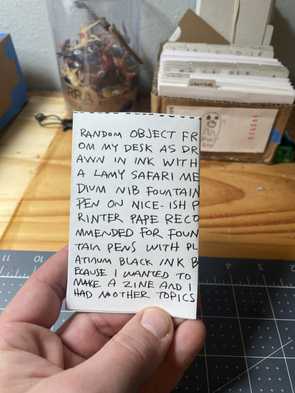 RANDOM OBJECT FR
OM MY DESK AS DR
AWN IN INK WITH
A LAMY SAFARI ME
DIUM NIB FOUNTAIN
PEN ON NICE-ISH P
RINTER PAPE RECO
MMENDED FOR FOUN
TAIN PENS WITH PL
ATINUM BLACK INK B
ECAUSE I WANTED TO
MAKE A ZINE AND I
HAD NO OTHER TOPICS